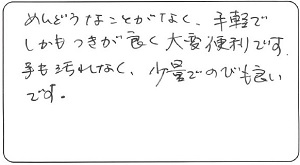 めんどうなことがなく、手軽で
しかもつきが良く大変便利です。
手も汚れなく、少量でのびも良い
です。